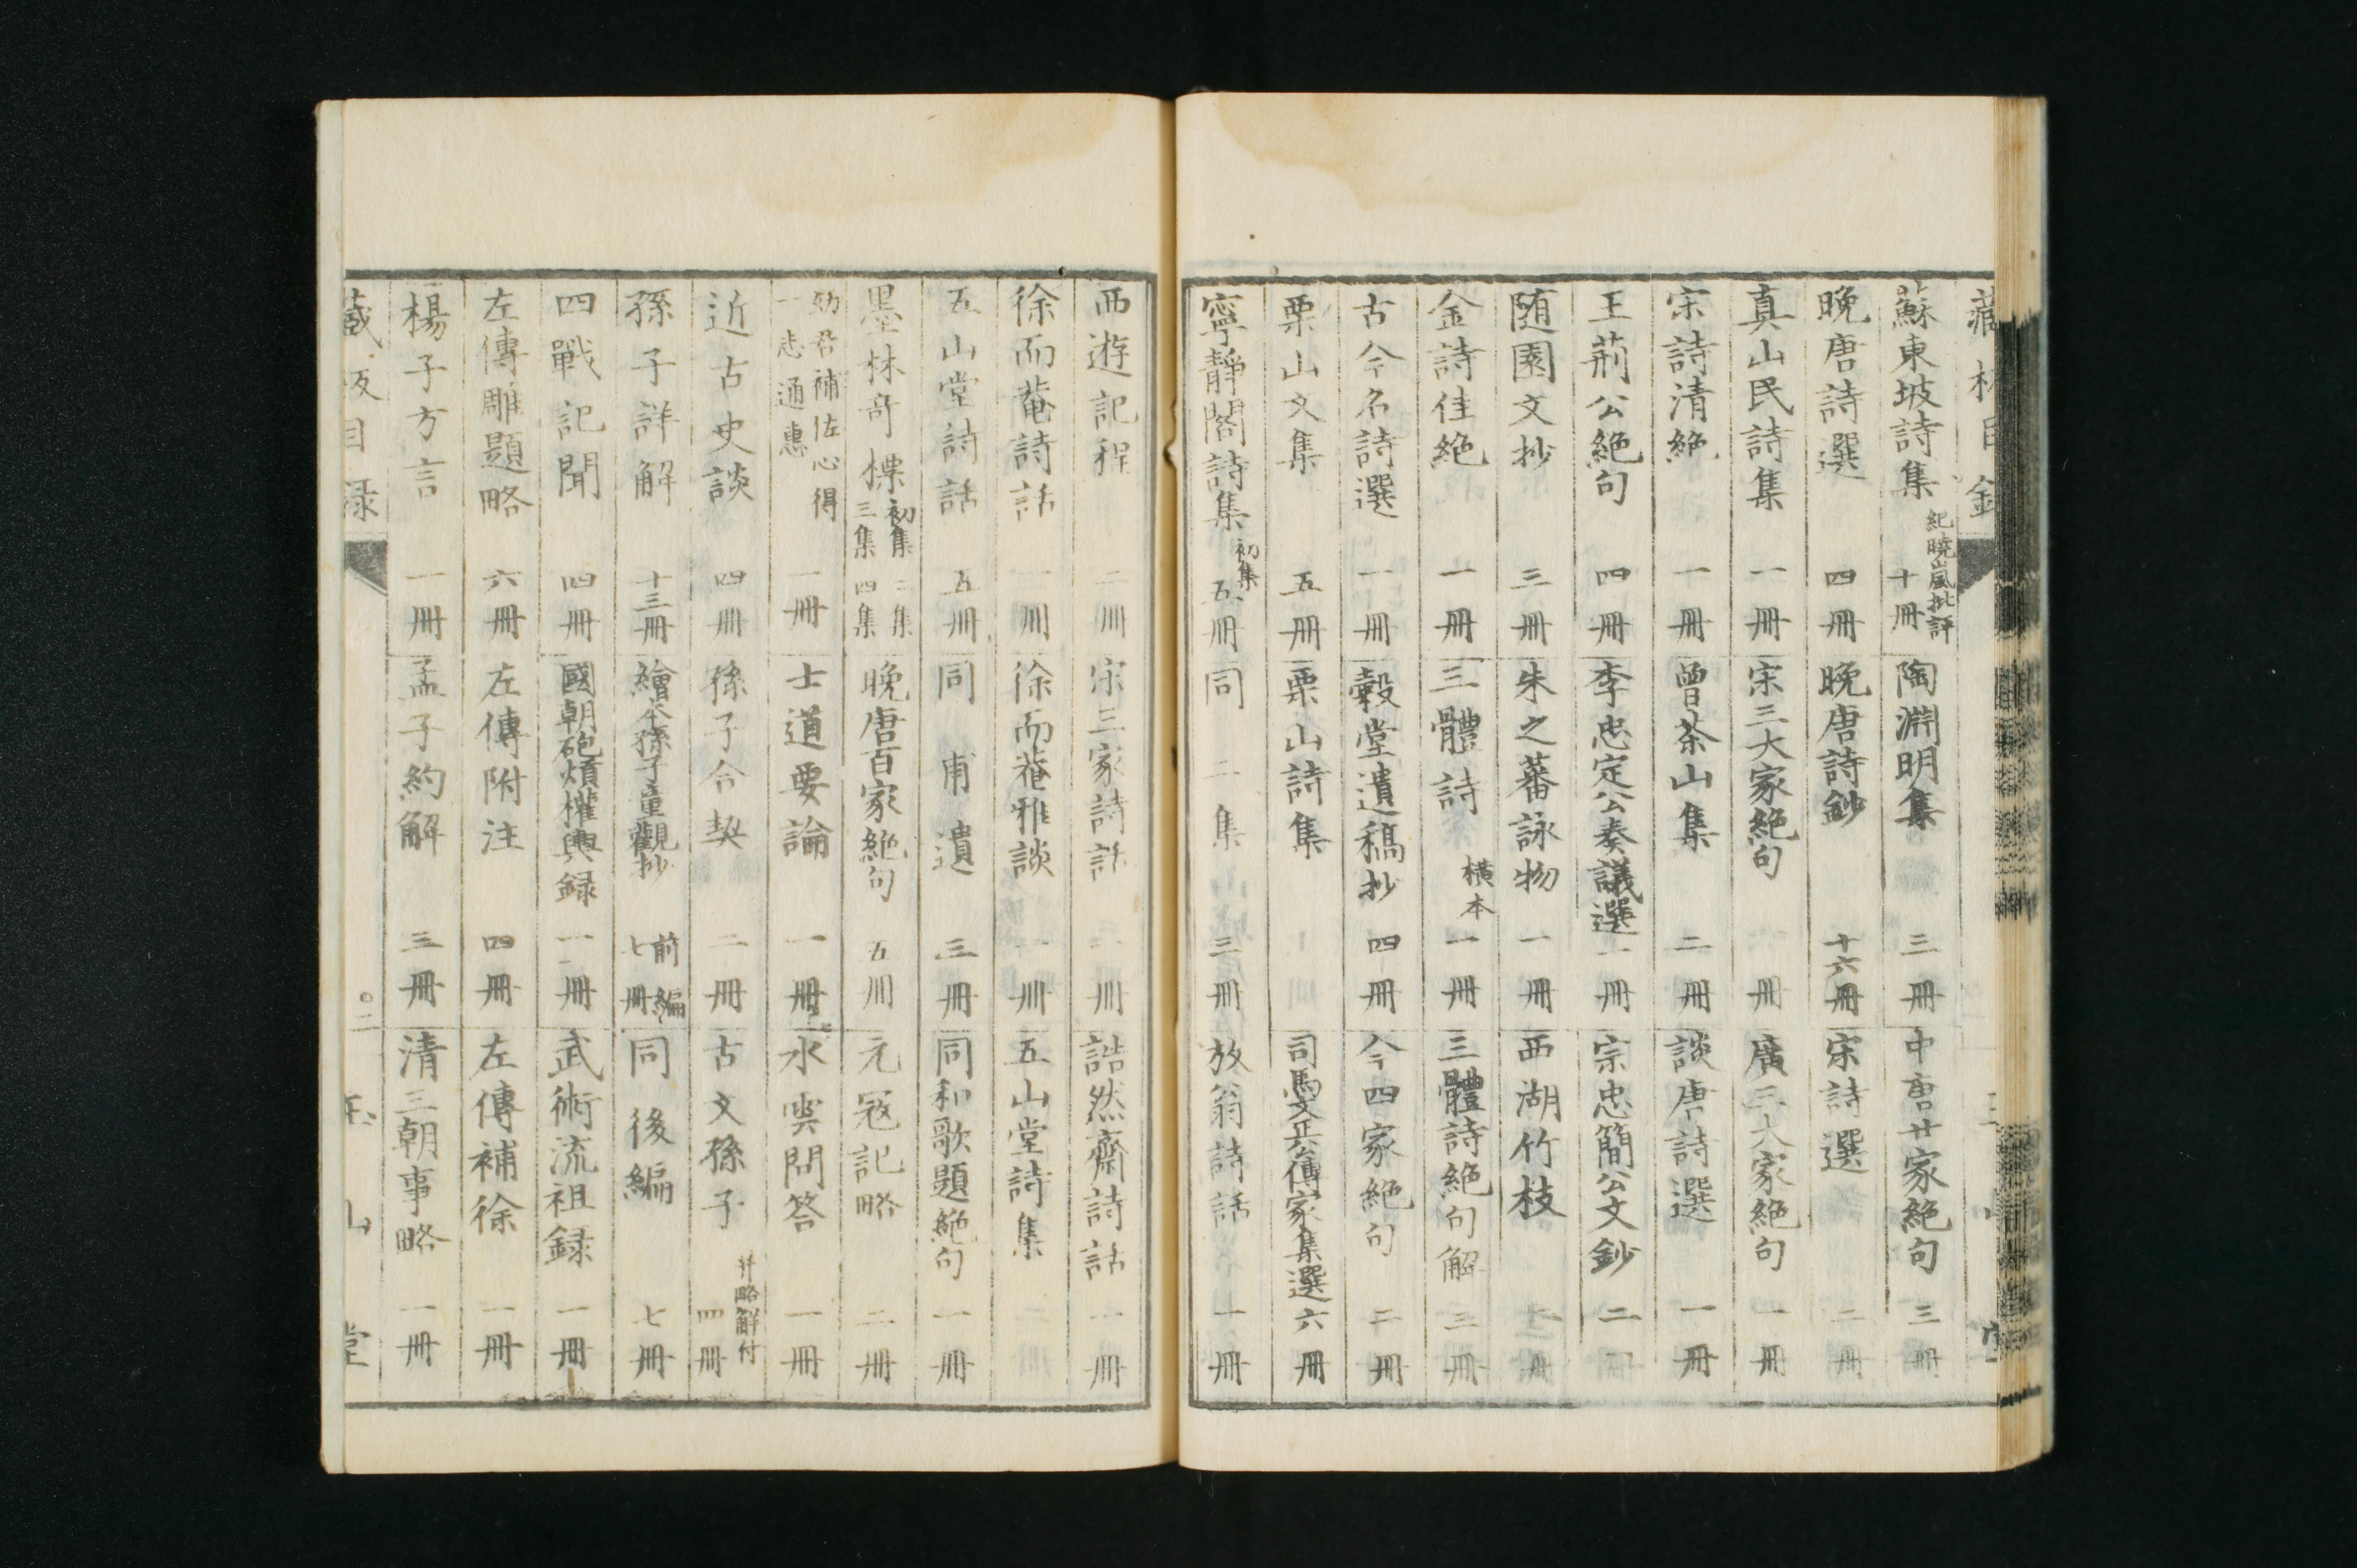 蘇東坡詩集 紀曉嵐批評 十冊 陶淵明集 三冊 中唐廿家絶句 三冊
晩唐詩選 四冊 晩唐詩鈔 十六冊 宋詩選 二冊
真山民詩集 一冊 宋三大家絶句 冊 廣三大家絶句 一冊
宋詩清絶 一冊 曾茶山集 二冊 談唐詩選 一冊
王荊公絶句 四冊 李忠定公奏議選 一冊 宗忠簡公文鈔 二
随園文抄 三冊 朱之蕃詠物 一冊 西湖竹枝 冊
金詩佳絶 一冊 三體詩 横本 一冊 三體詩絶句解 三冊
古今名詩選 一冊 穀堂遺稿抄 四冊 今四家絶句 二冊
栗山文集 五冊 栗山詩集 司馬文正公傳家集選 六冊
寧靜閣詩集 初集 五冊 同 二集 三冊 放翁詩話 一冊
西遊記程 二冊 宋三家詩話 一冊 誥然齋詩話 一冊
徐而菴詩話 一冊 徐而菴雅談 一冊 五山堂詩集
五山堂詩話 五冊 同 甫遺 三冊 同和歌題絶句 一冊
墨林奇標 初集 二集 三集 四集 晩唐百家絶句 五冊 元寇記略 二冊
幼君補佐心得 一志通惠 一冊 士道要論 一冊 水雲問答 一冊
近古史談 四冊 孫子合契 二冊 古文孫子 并略解付 四冊
孫子詳解 十三冊 繪本孫子童觀抄 前編 七冊 同 後編 七冊
四戰記聞 四冊 國朝砲熕權輿録 一冊 武術流祖録 一冊
左傳雕題略 六冊 左傳附注 四冊 左傳補徐 一冊
楊子方言 一冊 孟子約解 三冊 清三朝事略 一冊
藏版目録 〇二 玉山堂